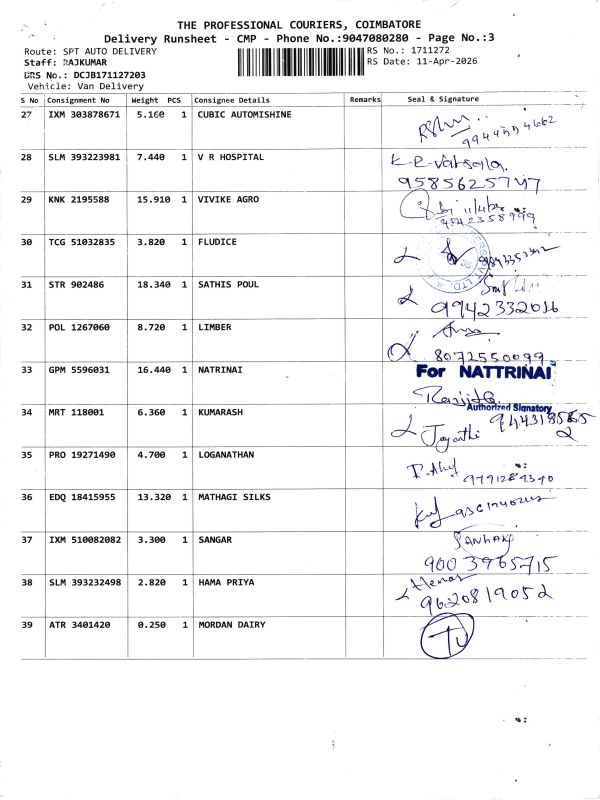 THE PROFESSIONAL COURIERS, COIMBATORE
Delivery Runsheet - CMP - Phone No.:9047080280 - Page No.:3
Route: SPT AUTO DELIVERY
RS No.: 1711272
Staff: RAJKUMAR
RS Date: 11-Apr-2026
DRS No.: DCJB171127203
Vehicle: Van Delivery
S No Consignment No Weight PCS Consignee Details Remarks Seal & Signature
27 IXM 303878671 5.160 1 CUBIC AUTOMISHINE
28 SLM 393223981 7.440 1 V R HOSPITAL
K.R. Vatsala.
9585625747
29 KNK 2195588 15.910 1 VIVIKE AGRO
30 TCG 51032835 3.820 1 FLUDICE
31 STR 902486 18.340 1 SATHIS POUL
9942332016
32 POL 1267060 8.720 1 LIMBER
8072550099
33 GPM 5596031 16.440 1 NATRINAI
For NATTRINAI
Authorized Signatory
34 MRT 118001 6.360 1 KUMARASH
Jayanthi
35 PRO 19271490 4.700 1 LOGANATHAN
36 EDQ 18415955 13.320 1 MATHAGI SILKS
37 IXM 510082082 3.300 1 SANGAR
9003965715
38 SLM 393232498 2.820 1 HAMA PRIYA
9620819052
39 ATR 3401420 0.250 1 MORDAN DAIRY